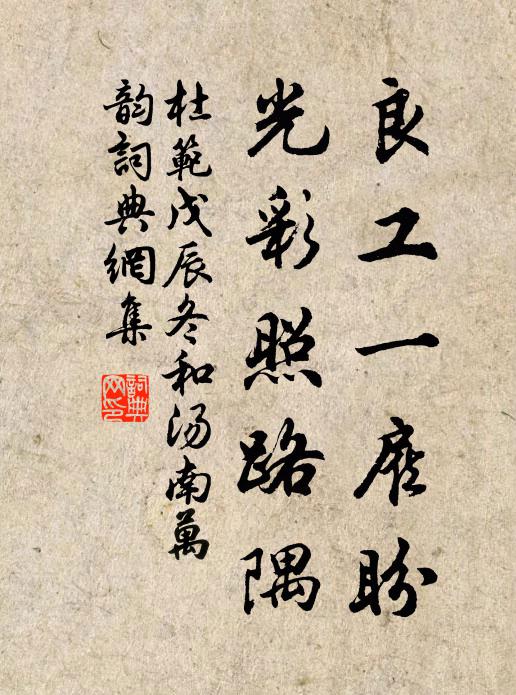 良工一顾盼
光彩照路隅
杜範戊辰冬和汤南萬
韵詞典網集
詞典网印